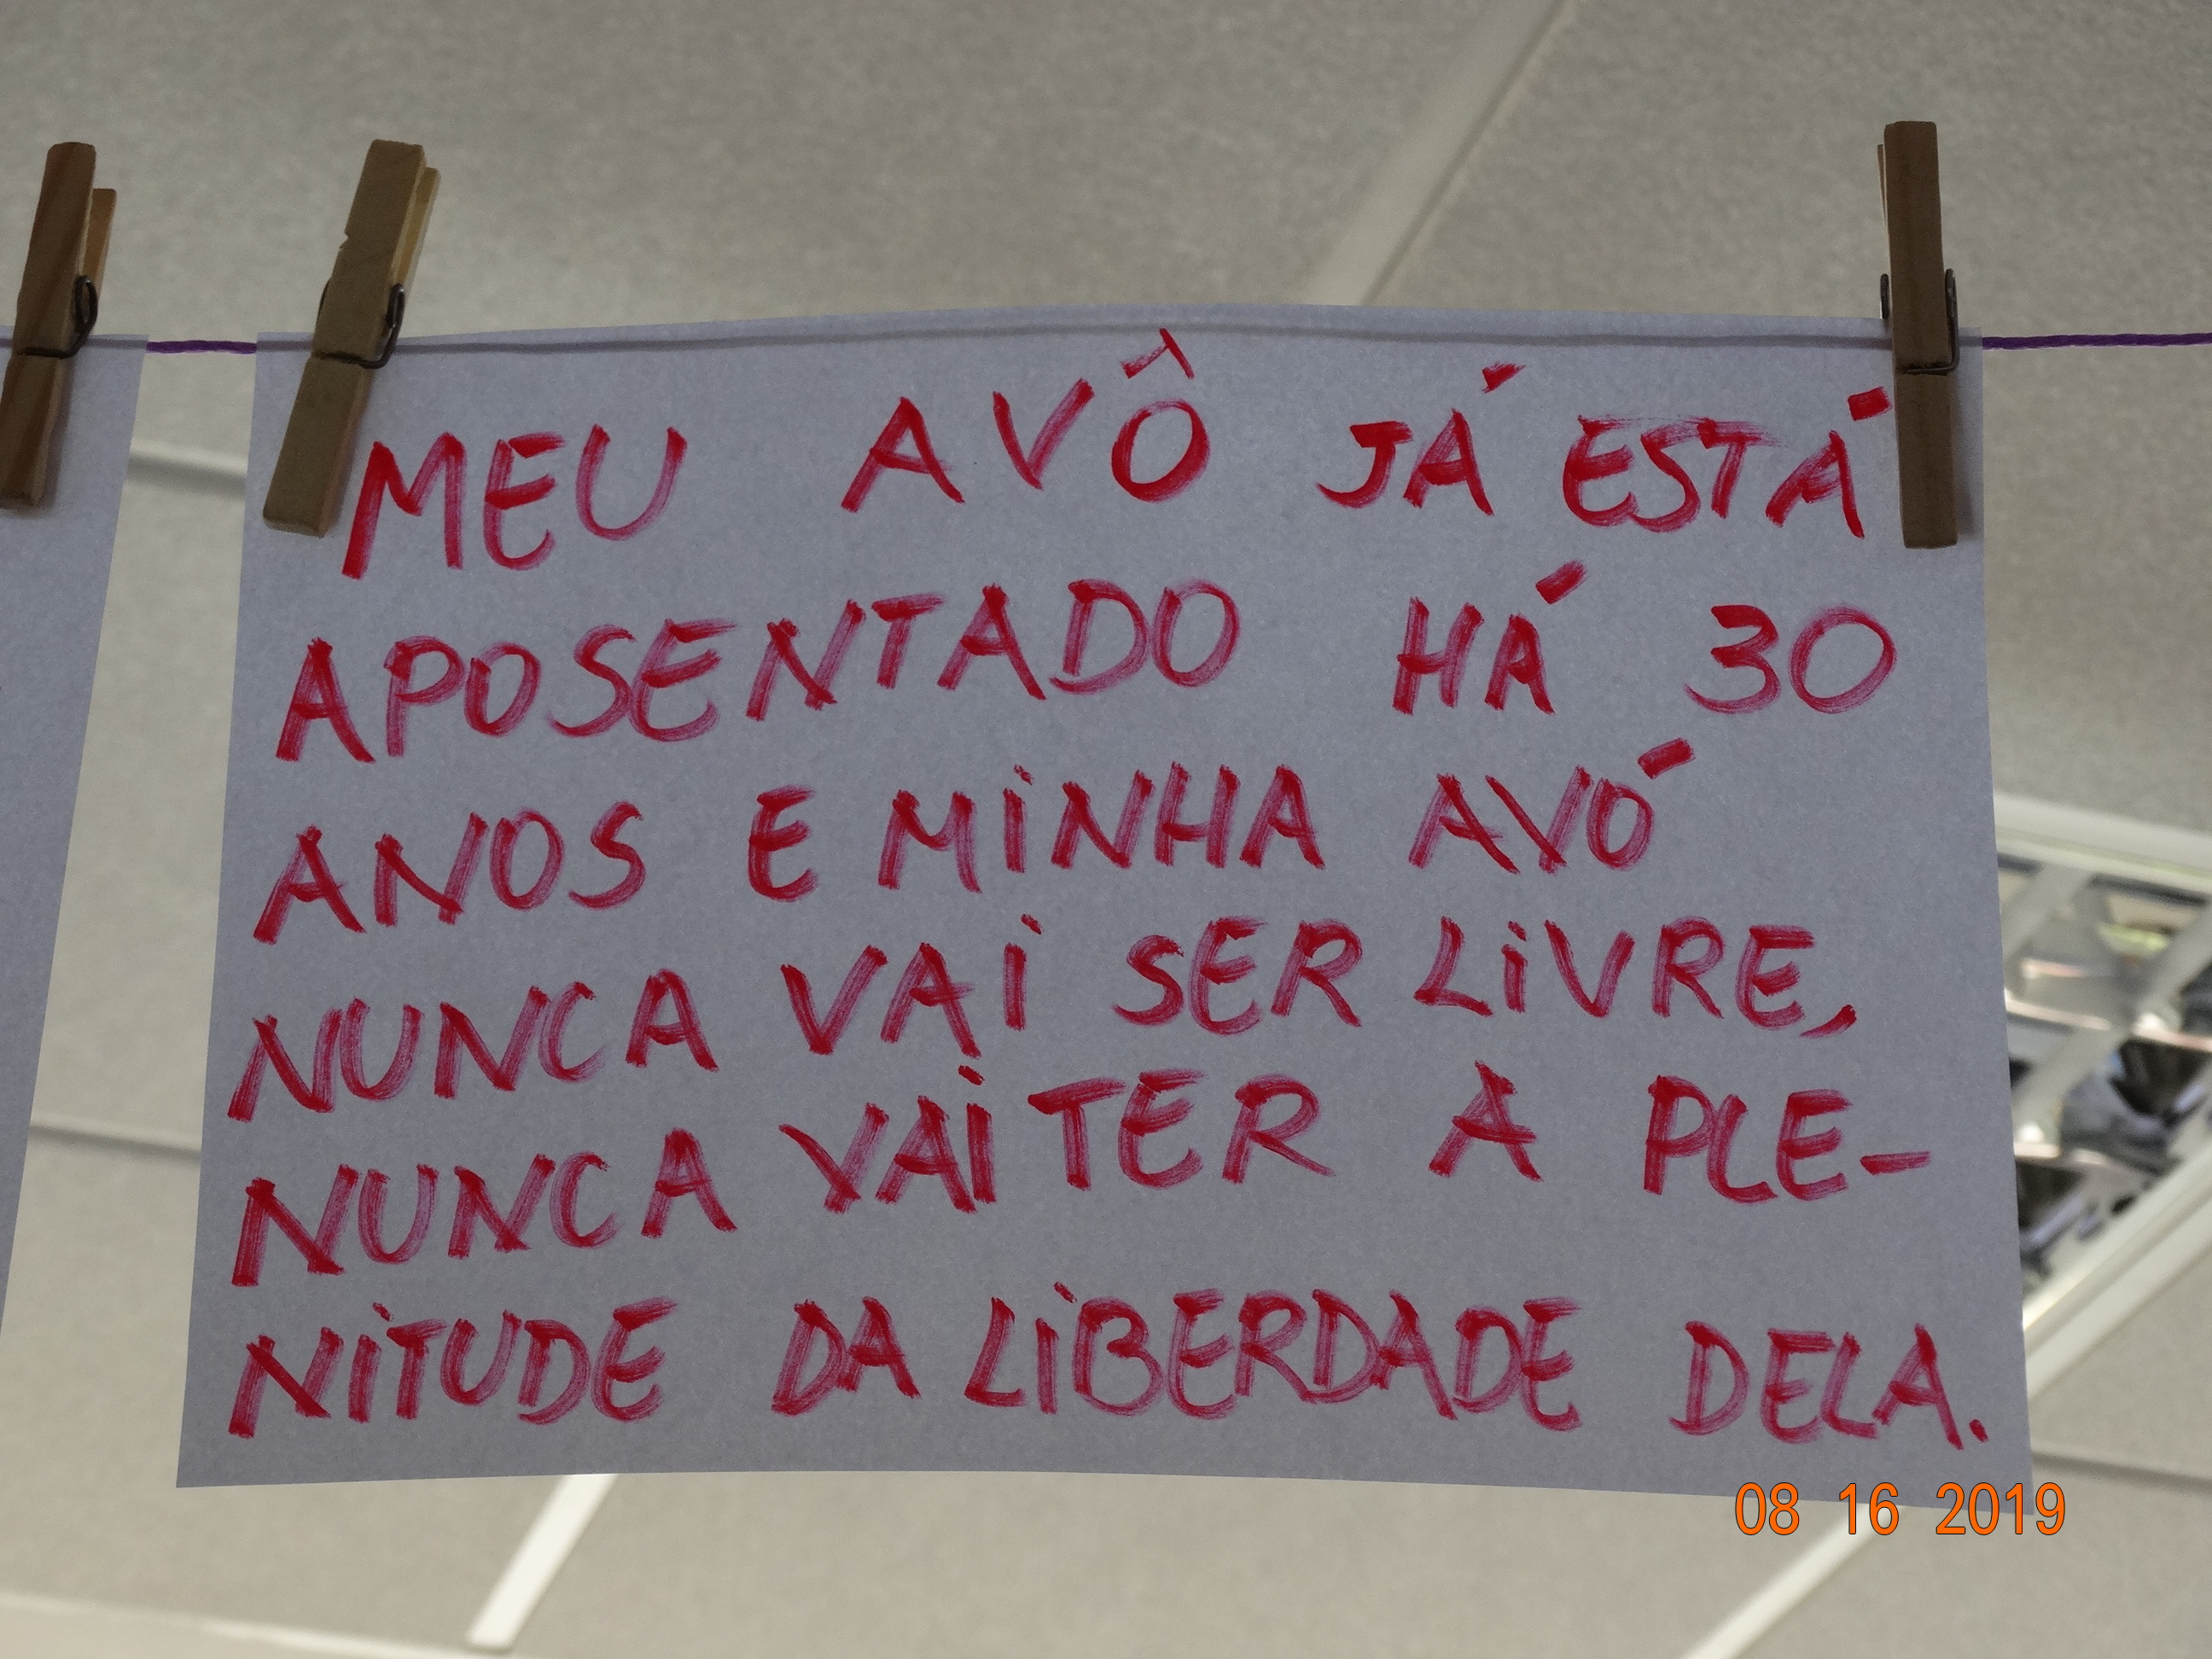 MEU AVÔ JÁ ESTÁ
APOSENTADO HÁ 30
ANOS E MINHA AVÓ
NUNCA VAI SER LIVRE,
NUNCA VAI TER A PLE-
NITUDE DA LIBERDADE DELA.
08 16 2019